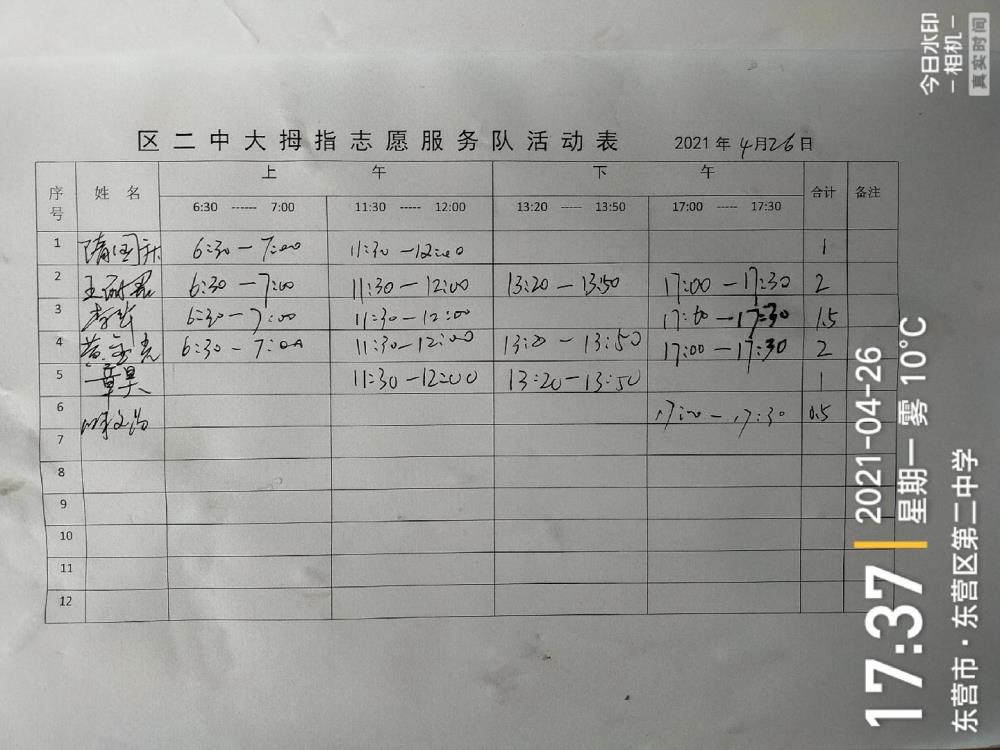 区二中大拇指志愿服务队活动表 2021年4月26日
序号 姓名 上午 下午 合计 备注
6:30 ------ 7:00 11:30 ----- 12:00 13:20 ----- 13:50 17:00 ----- 17:30
1 隋国升 6:30-7:00 11:30-12:00 1
2 6:30-7:00 11:30-12:00 13:20-13:50 17:00-17:30 2
3 6:30-7:00 11:30-12:00 17:00-17:30 1.5
4 6:30-7:00 11:30-12:00 13:20-13:50 17:00-17:30 2
5 章昊 11:30-12:00 13:20-13:50 1
6 17:00-17:30 0.5
7
8
9
10
11
12
今日水印
-相机-
真实时间
17:37
2021-04-26
星期一 雾 10°C
东营市·东营区第二中学